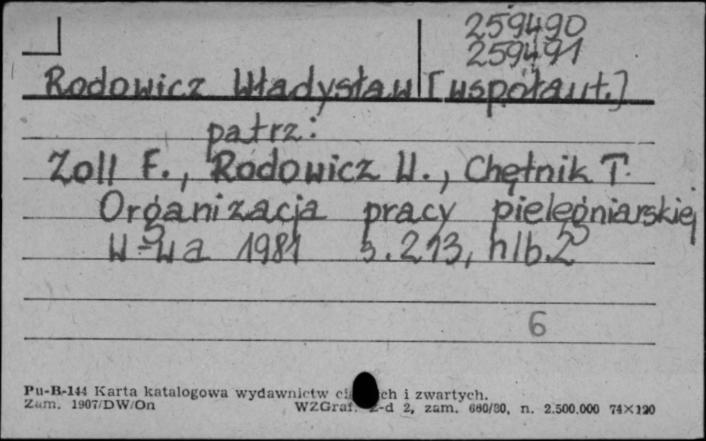 259490
259491
Rodowicz Władysław [współaut.]
patrz:
Zoll F., Rodowicz W., Chętnik T.
Organizacja pracy pielęgniarskiej
W-wa 1981 s. 213, nlb. 2
6
Pu-B-144 Karta katalogowa wydawnictw i zwartych.
Zam. 1907/DW/On WZGraf. Z-d 2, zam. 660/80, n. 2.500.000 74×120